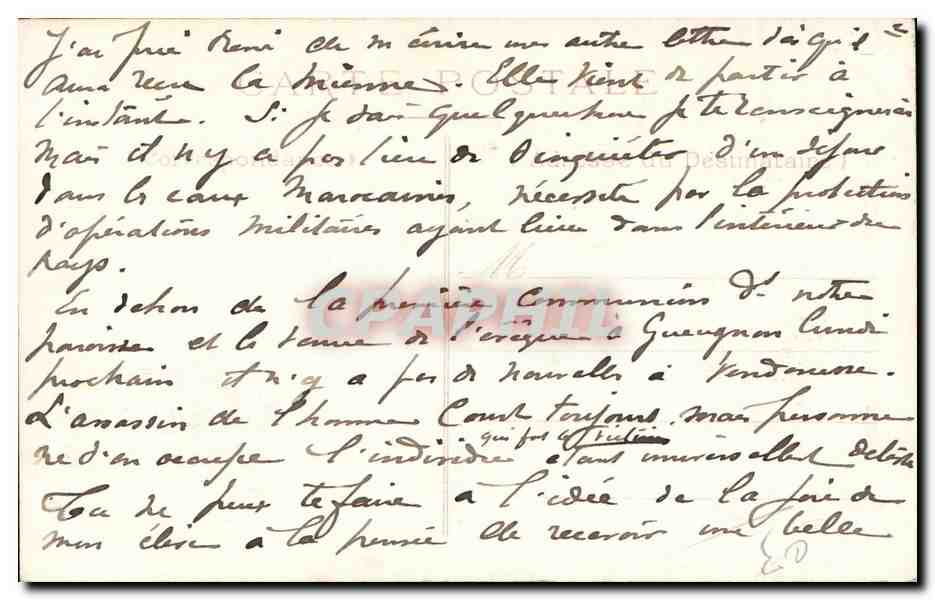 J'ai prié René de m'écrire une autre lettre dès qu'il
aura reçu la mienne. Elle vient de partir à
CARTE POSTALE
l'instant. Si je sais quelque chose je te renseignerai
mais il n'y a pas lieu de s'inquiéter d'un séjour
(Correspondance) Adresse du Destinataire)
dans les eaux Marocaines, nécessité par la protection
d'opérations militaires ayant lieu dans l'intérieur du
pays.
M
En dehors de la première communion de notre
CPAPHIL
paroisse et la venue de l'évêque à Gueugnon lundi
prochain il n'y a pas de nouvelles à Vendenesse.
L'assassin de l'homme court toujours mais personne
ne s'en occupe l'individu qui fut la victime étant universellement détesté
Tu ne peux te faire à l'idée de la joie de
mon élève à la pensée de recevoir une belle